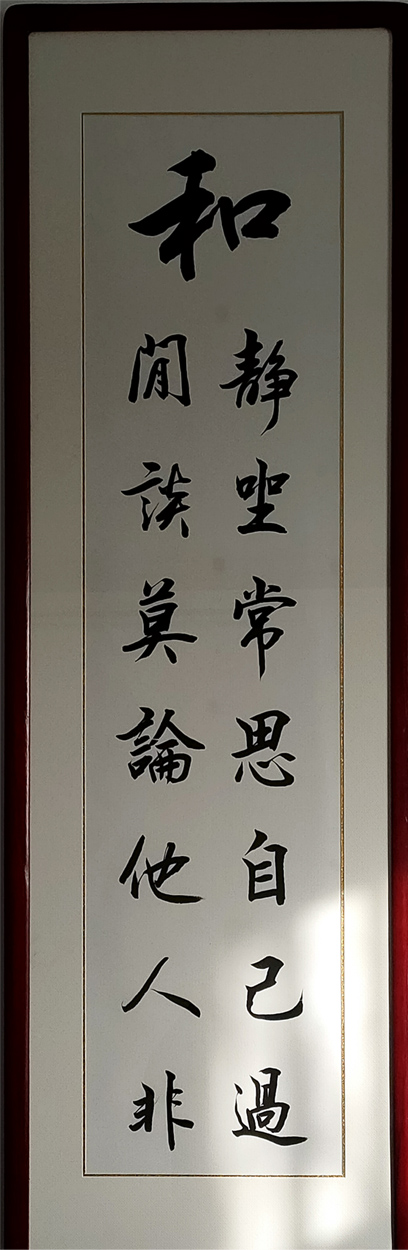 和
靜坐常思自己過
閒談莫論他人非